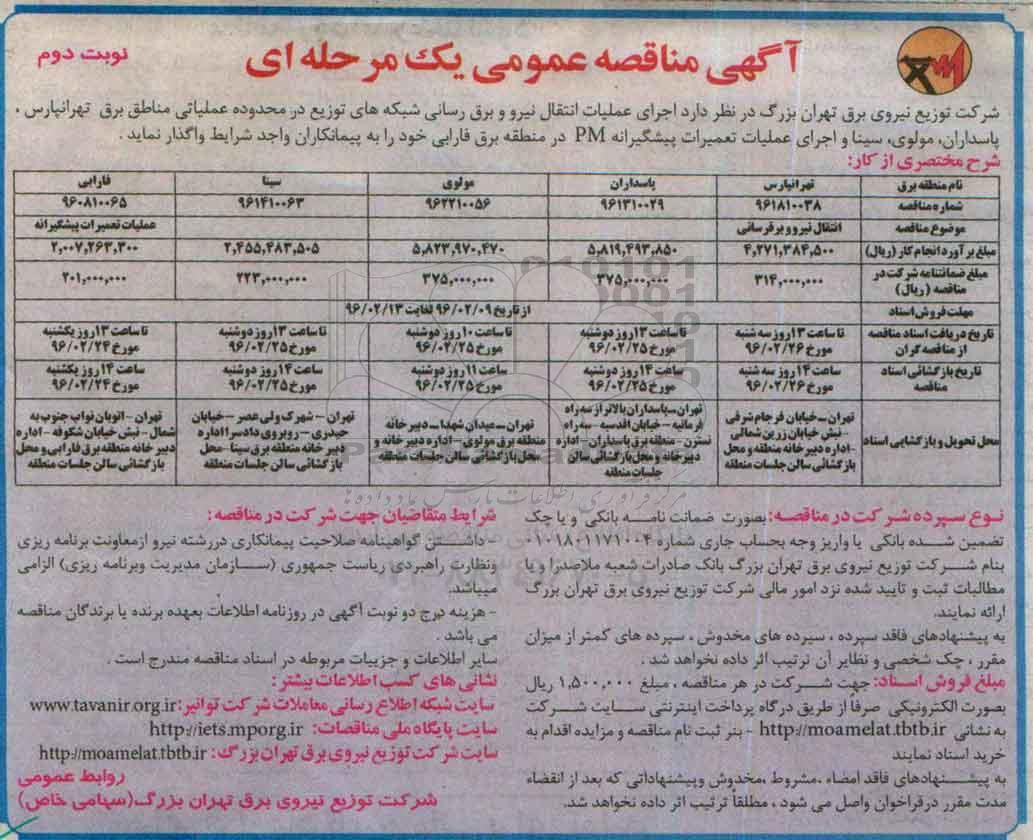 آگهی مناقصه عمومی یک مرحله ای
نوبت دوم
شرکت توزیع نیروی برق تهران بزرگ در نظر دارد اجرای عملیات انتقال نیرو و برق رسانی شبکه های توزیع در محدوده عملیاتی مناطق برق تهرانپارس ،
پاسداران، مولوی، سینا و اجرای عملیات تعمیرات پیشگیرانه PM در منطقه برق فارابی خود را به پیمانکاران واجد شرایط واگذار نماید .
شرح مختصری از کار:
نام منطقه برق تهرانپارس پاسداران مولوی سینا فارابی
شماره مناقصه ۹۶۱۸۱۰۰۳۸ ۹۶۱۳۱۰۰۲۹ ۹۶۲۲۱۰۰۵۶ ۹۶۱۴۱۰۰۶۳ ۹۶۰۸۱۰۰۶۵
موضوع مناقصه انتقال نیرو و برقرسانی عملیات تعمیرات پیشگیرانه
مبلغ برآورد انجام کار (ریال) ۴,۲۷۱,۳۸۴,۵۰۰ ۵,۸۱۹,۴۹۳,۸۵۰ ۵,۸۲۳,۹۷۰,۴۷۰ ۲,۴۵۵,۴۸۳,۵۰۵ ۲,۰۰۷,۲۶۳,۳۰۰
مبلغ ضمانتنامه شرکت در
مناقصه (ریال) ۳۱۴,۰۰۰,۰۰۰ ۳۷۵,۰۰۰,۰۰۰ ۳۷۵,۰۰۰,۰۰۰ ۲۲۳,۰۰۰,۰۰۰ ۲۰۱,۰۰۰,۰۰۰
مهلت فروش اسناد از تاریخ ۹۶/۰۲/۰۹ لغایت ۹۶/۰۲/۱۳
تاریخ دریافت اسناد مناقصه تا ساعت ۱۳ روز سه شنبه تا ساعت ۱۳ روز دوشنبه تا ساعت ۱۰ روز دوشنبه تا ساعت ۱۳ روز دوشنبه تا ساعت ۱۳ روز یکشنبه
از مناقصه گران مورخ ۹۶/۰۲/۲۶ مورخ ۹۶/۰۲/۲۵ مورخ ۹۶/۰۲/۲۵ مورخ ۹۶/۰۲/۲۵ مورخ ۹۶/۰۲/۲۴
تاریخ بازگشائی اسناد ساعت ۱۴ روز سه شنبه ساعت ۱۴ روز دوشنبه ساعت ۱۱ روز دوشنبه ساعت ۱۴ روز دوشنبه ساعت ۱۴ روز یکشنبه
مناقصه مورخ ۹۶/۰۲/۲۶ مورخ ۹۶/۰۲/۲۵ مورخ ۹۶/۰۲/۲۵ مورخ ۹۶/۰۲/۲۵ مورخ ۹۶/۰۲/۲۴
محل تحویل و بازگشایی اسناد
تهران – خیابان فرجام شرقی
– نبش خیابان زرین شمالی
– اداره دبیرخانه منطقه و محل
بازگشائی سالن جلسات منطقه
تهران – پاسداران بالاتر از سه راه
فرمانیه – خیابان اقدسیه – سه راه
نسترن – منطقه برق پاسداران – اداره
دبیرخانه و محل بازگشائی سالن
جلسات منطقه
تهران – میدان شهدا – دبیرخانه
منطقه برق مولوی – اداره دبیرخانه و
محل بازگشائی سالن جلسات منطقه
تهران – شهرک ولی عصر – خیابان
حیدری – روبروی دادسرا اداره
دبیرخانه منطقه برق سینا – محل
بازگشائی سالن جلسات منطقه
تهران – اتوبان نواب جنوب به
شمال – نبش خیابان شکوفه – اداره
دبیرخانه منطقه برق فارابی و محل
بازگشائی سالن جلسات منطقه
نوع سپرده شرکت در مناقصه: بصورت ضمانت نامه بانکی و یا چک
تضمین شده بانکی یا واریز وجه بحساب جاری شماره ۰۱۰۱۸۰۱۱۷۱۰۰۴
بنام شرکت توزیع نیروی برق تهران بزرگ بانک صادرات شعبه ملاصدرا و یا
مطالبات ثبت و تایید شده نزد امور مالی شرکت توزیع نیروی برق تهران بزرگ
ارائه نمایند.
به پیشنهادهای فاقد سپرده ، سپرده های مخدوش ، سپرده های کمتر از میزان
مقرر ، چک شخصی و نظایر آن ترتیب اثر داده نخواهد شد .
مبلغ فروش اسناد: جهت شرکت در هر مناقصه ، مبلغ ۱,۵۰۰,۰۰۰ ریال
بصورت الکترونیکی صرفا از طریق درگاه پرداخت اینترنتی سایت شرکت
به نشانی http://moamelat.tbtb.ir - بنر ثبت نام مناقصه و مزایده اقدام به
خرید اسناد نمایند
به پیشنهادهای فاقد امضاء ،مشروط ،مخدوش وپیشنهاداتی که بعد از انقضاء
مدت مقرر درفراخوان واصل می شود ، مطلقاً ترتیب اثر داده نخواهد شد.
شرایط متقاضیان جهت شرکت در مناقصه:
- داشتن گواهینامه صلاحیت پیمانکاری دررشته نیرو ازمعاونت برنامه ریزی
ونظارت راهبردی ریاست جمهوری (سازمان مدیریت وبرنامه ریزی) الزامی
میباشد.
- هزینه درج دو نوبت آگهی در روزنامه اطلاعات بعهده برنده یا برندگان مناقصه
می باشد .
سایر اطلاعات و جزییات مربوطه در اسناد مناقصه مندرج است .
نشانی های کسب اطلاعات بیشتر:
سایت شبکه اطلاع رسانی معاملات شرکت توانیر: www.tavanir.org.ir
سایت پایگاه ملی مناقصات: http://iets.mporg.ir
سایت شرکت توزیع نیروی برق تهران بزرگ: http://moamelat.tbtb.ir
روابط عمومی
شرکت توزیع نیروی برق تهران بزرگ(سهامی خاص)